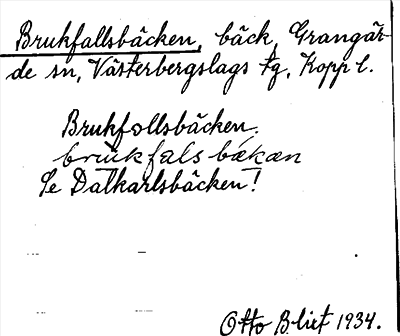 Brukfallsbäcken, bäck, Grangär-
de sn, Västerbergslags tg, Kopp l.
Brukfallsbäcken.
brukfals bækæn
Se Dalkarlsbäcken!
Otto Blixt 1934.